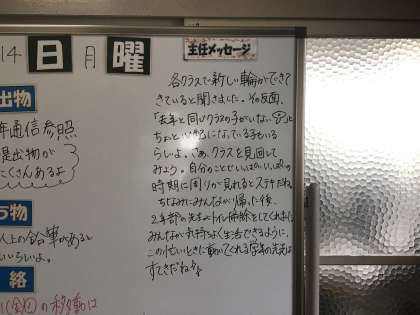 14 日 月 曜
主任メッセージ
出物
年通信参照
提出物が
たくさんあるよ
ち物
人以上の鉛筆があると
いいらしい。
絡
の移動は
各クラスで新しい輪ができて
きていると聞きました。その反面、
「去年と同じクラスの子がいない」と
ちょっと心配になっている子もいる
らしいよ。さぁ、クラスを見回して
みよう。自分のことでいっぱいいっぱいの
時期に周りが見れるとステキだね。
ちなみにみんなが帰った後、
2年部の先生はトイレ掃除をしてくれました。
みんなが気持ちよく生活できるように、
この忙しいときに動いてくれる学年の先生は
すてきだね